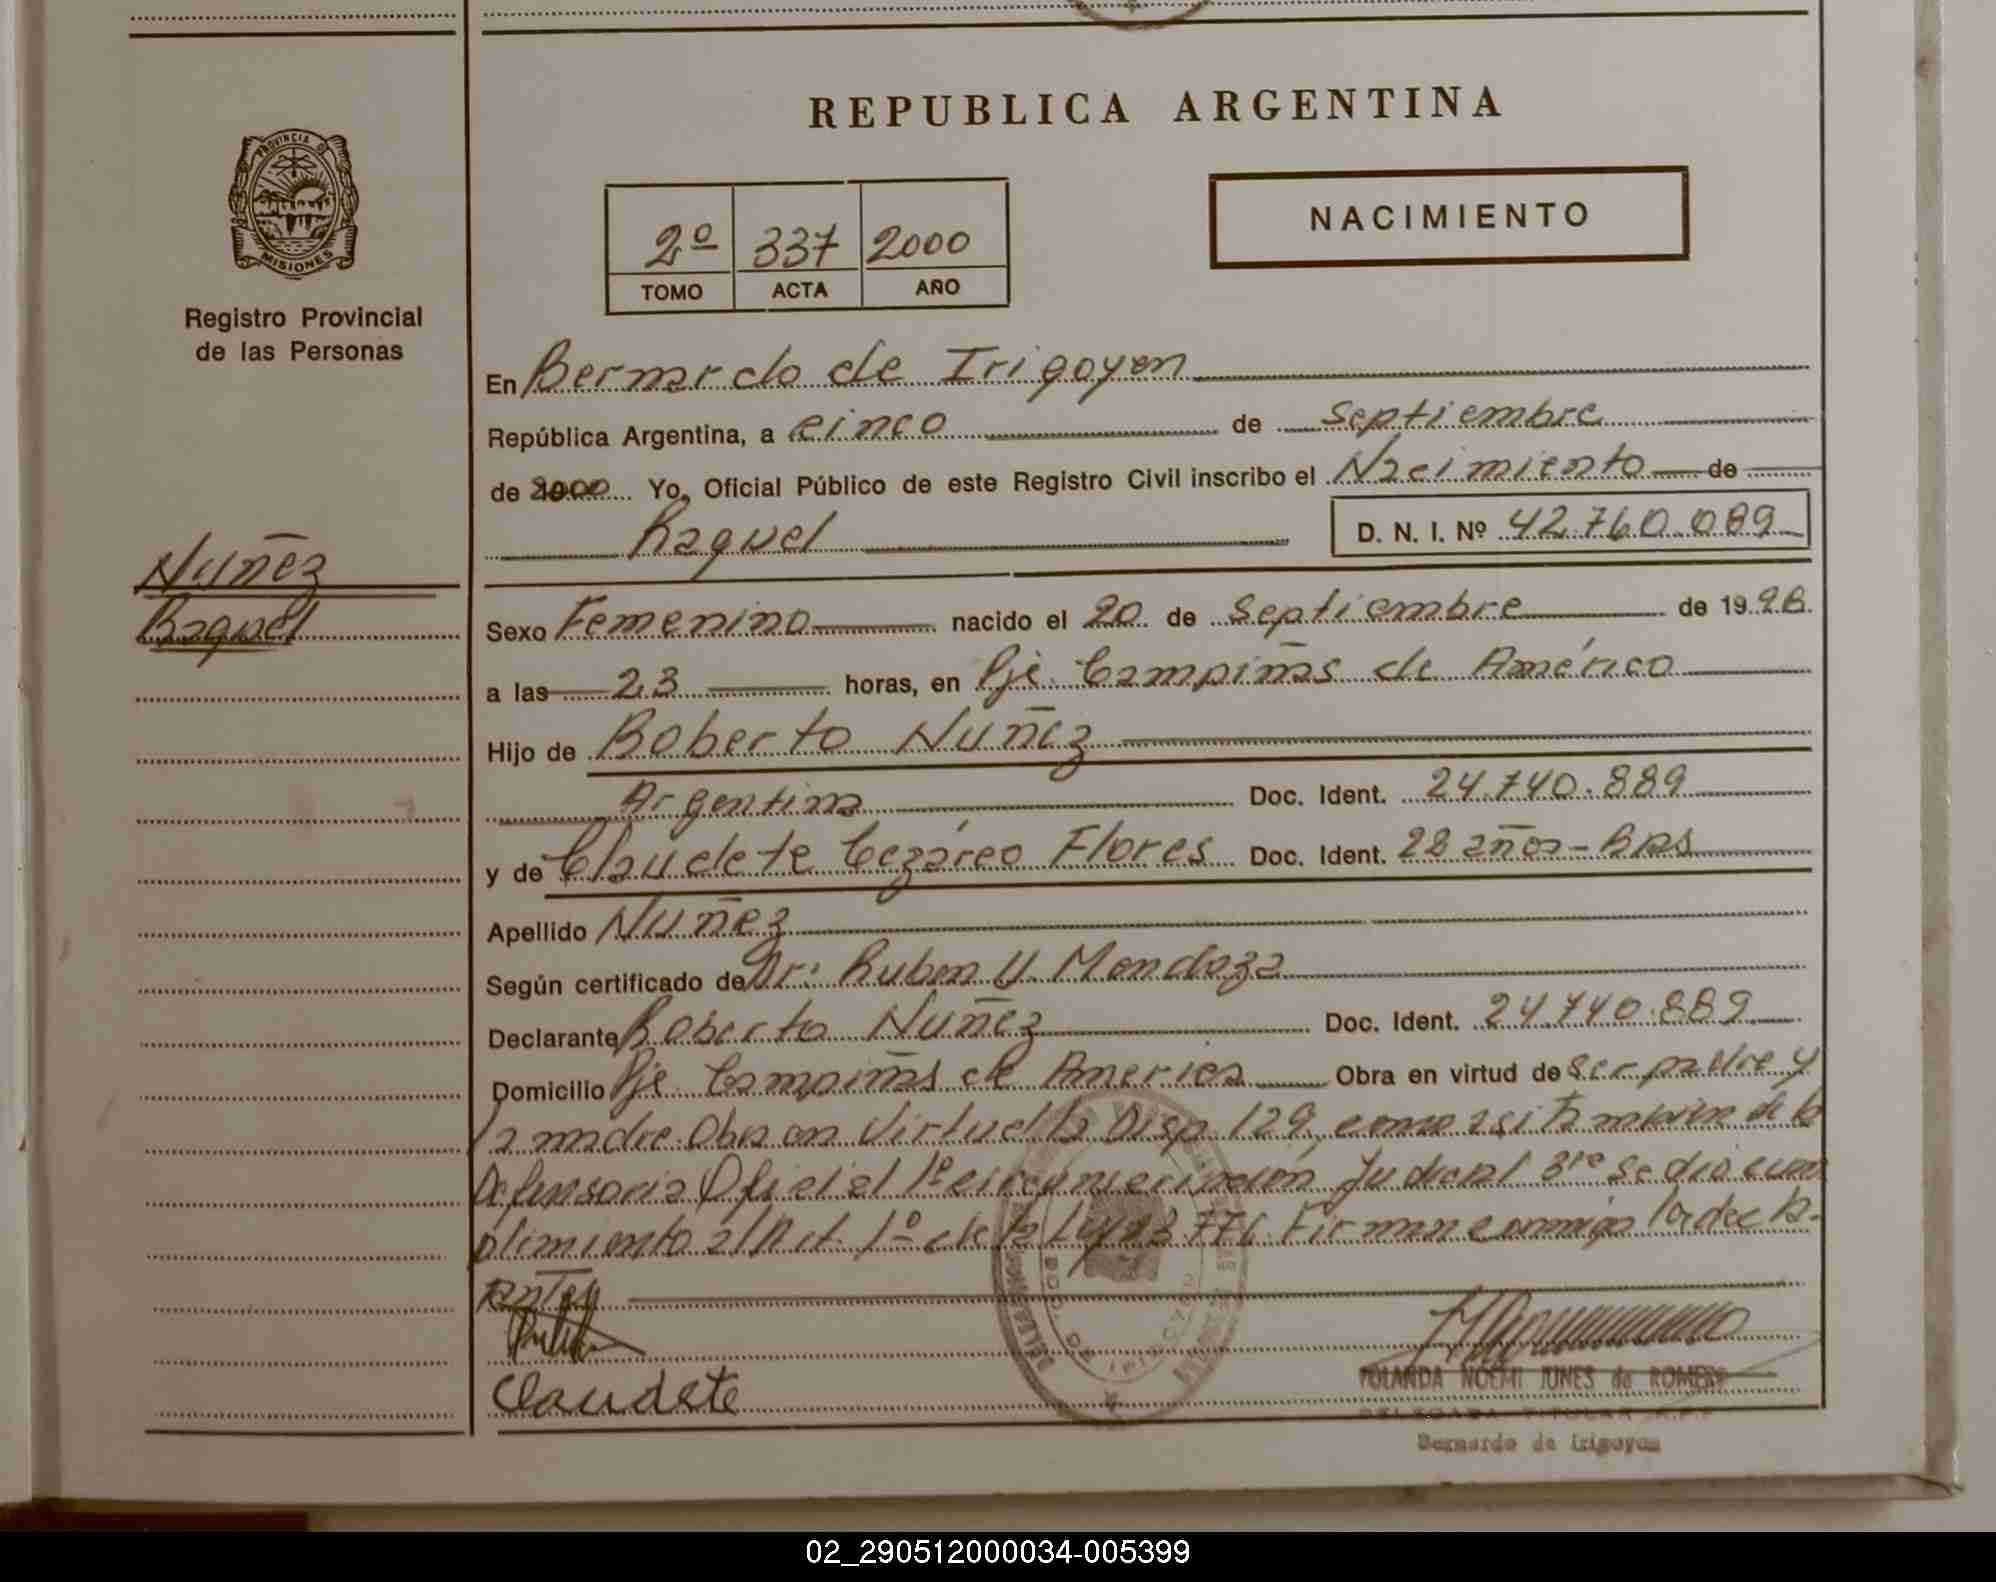 REPUBLICA ARGENTINA
PROVINCIA DE
MISIONES
Registro Provincial
de las Personas
2º 337 2000
TOMO ACTA AÑO
NACIMIENTO
En Bernardo de Irigoyen
República Argentina, a cinco de septiembre
de 2000 Yo, Oficial Público de este Registro Civil inscribo el Nacimiento de
Raquel D. N. I. Nº 42.760.089
Nuñez
Raquel
Sexo Femenino nacido el 20 de septiembre de 19
a las 23 horas, en Pje. Campiñas de América
Hijo de Roberto Nuñez
Argentina Doc. Ident. 24.740.889
y de Claudete Cezáreo Flores Doc. Ident. 28 años - Bras
Apellido Nuñez
Según certificado de Dr: Ruben Mendoza
Declarante Roberto Nuñez Doc. Ident. 24.740.889
Domicilio Pje. Campiñas de America Obra en virtud de ser padre y
la madre. Obra en virtud la Disp. 129, como asi de la
Defensoria Oficial 1º circunscripción Judicial 3ra se dió cum
plimiento al Art. 1º de la Ley Firman conmigo los decla-
rantes
Claudete
YOLANDA NOEMI JUNES de ROMERO
DELEGADA TITULAR R.P.P.
Bernardo de Irigoyen
02_290512000034-005399